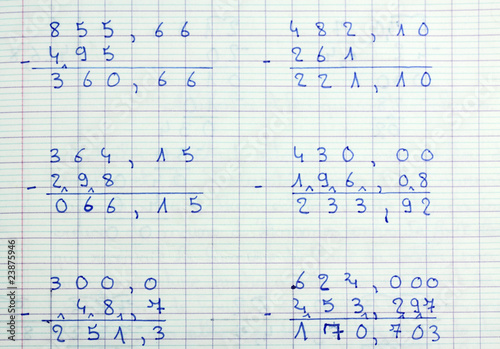 855,66
- 495
360,66
482,10
- 261
221,10
364,15
- 298
066,15
430,00
- 196,08
233,92
300,0
- 48,7
251,3
624,000
- 453,297
170,703
Adobe Stock | #23875946